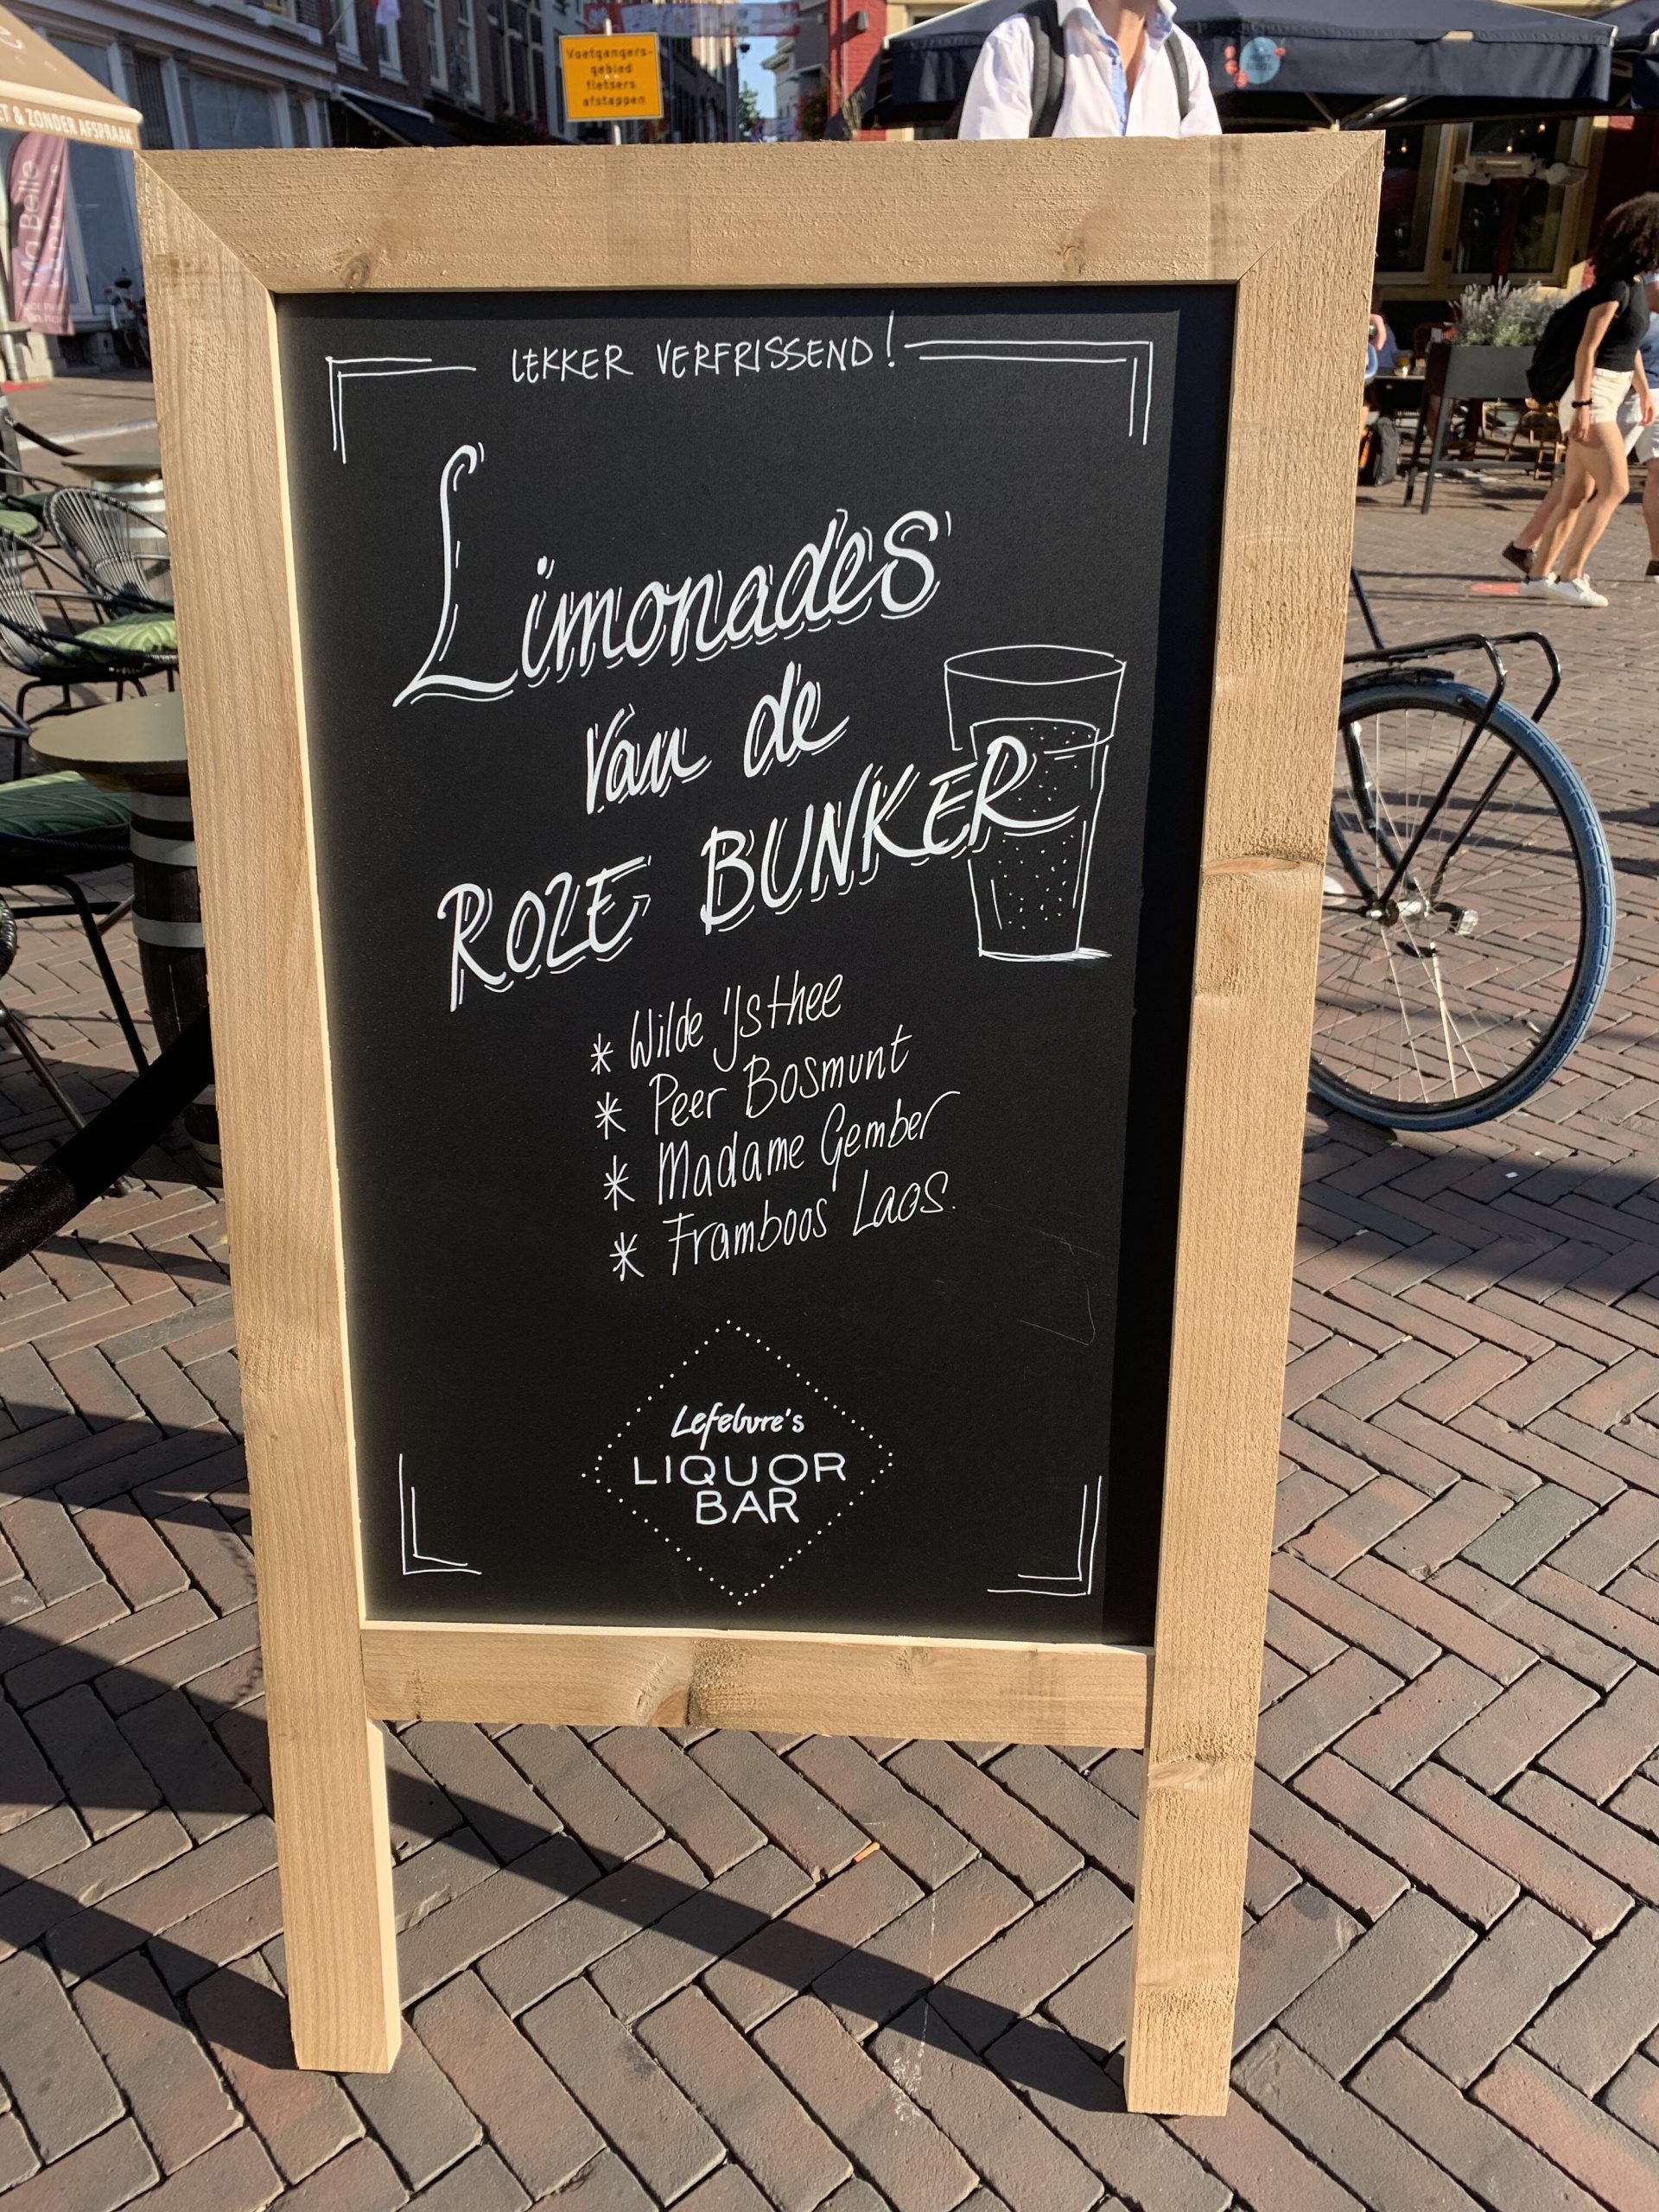 Voetgangers-
gebied
fietsers
afstappen
ET & ZONDER AFSPRAAK
Ma Belle
LEKKER VERFRISSEND!
Limonades
van de
ROZE BUNKER
* Wilde IJsthee
* Peer Bosmunt
* Madame Gember
* Framboos Laos.
Lefebvre's
LIQUOR
BAR